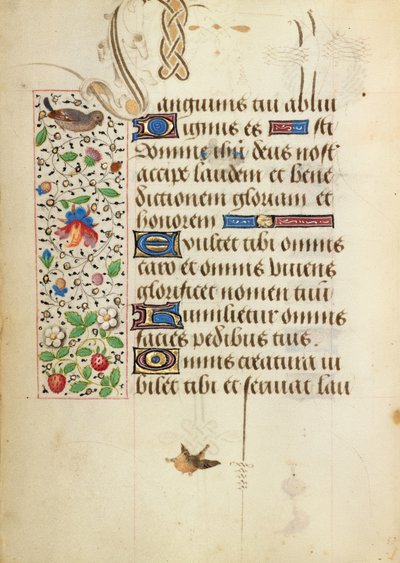 sanguinis tui ablui
Dignus es st
domine ihu deus nost
accipe laudem et bene
dictionem gloriam et
honorem
Exultet tibi omnis
caro et omnis vivens
glorificet nomen tuū
Humilietur omnis
facies pedibus tuis.
Omnis creatura iu
bilet tibi et serviat lau